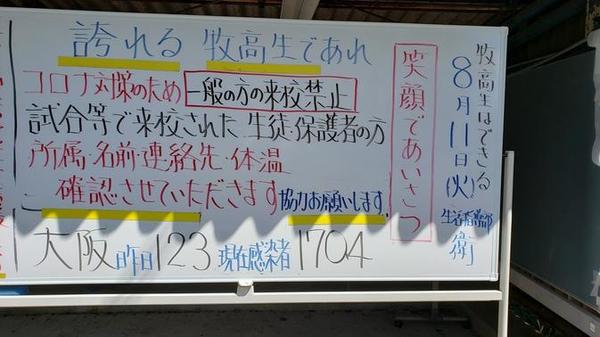 誇れる 牧高生であれ
コロナ対策のため 一般の方の来校禁止
試合等で来校された 生徒・保護者の方
所属・名前・連絡先・体温
確認させていただきます 協力お願いします。
大阪 昨日 123 現在感染者 1704
笑顔であいさつ
牧高生はできる
8月11日(火)
生活指導部
衛